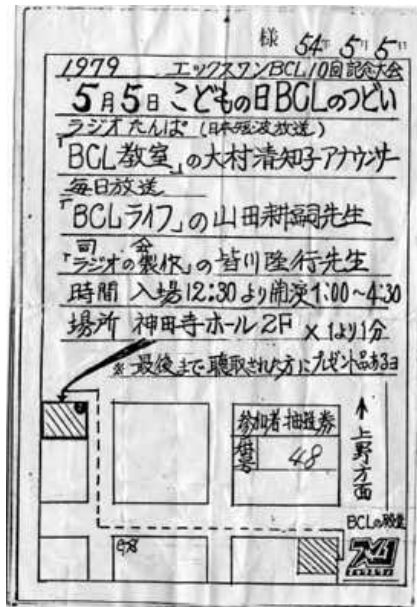 様 54年 5月 5日
1979 エックスワンBCL10回記念大会
5月5日 こどもの日BCLのつどい
ラジオたんぱ (日本短波放送)
「BCL教室」の大村清知子アナウンサー
毎日放送
「BCLライフ」の山田耕嗣先生
司会
「ラジオの製作」の皆川隆行先生
時間 入場12:30より開演1:00~4:30
場所 神田寺ホール 2F ×1より1分
※ 最後まで聴取された方にプレゼント品あるヨ
参加者抽選券
番号 48
↑上野方面
BCLの殿堂
X1
エックスワン